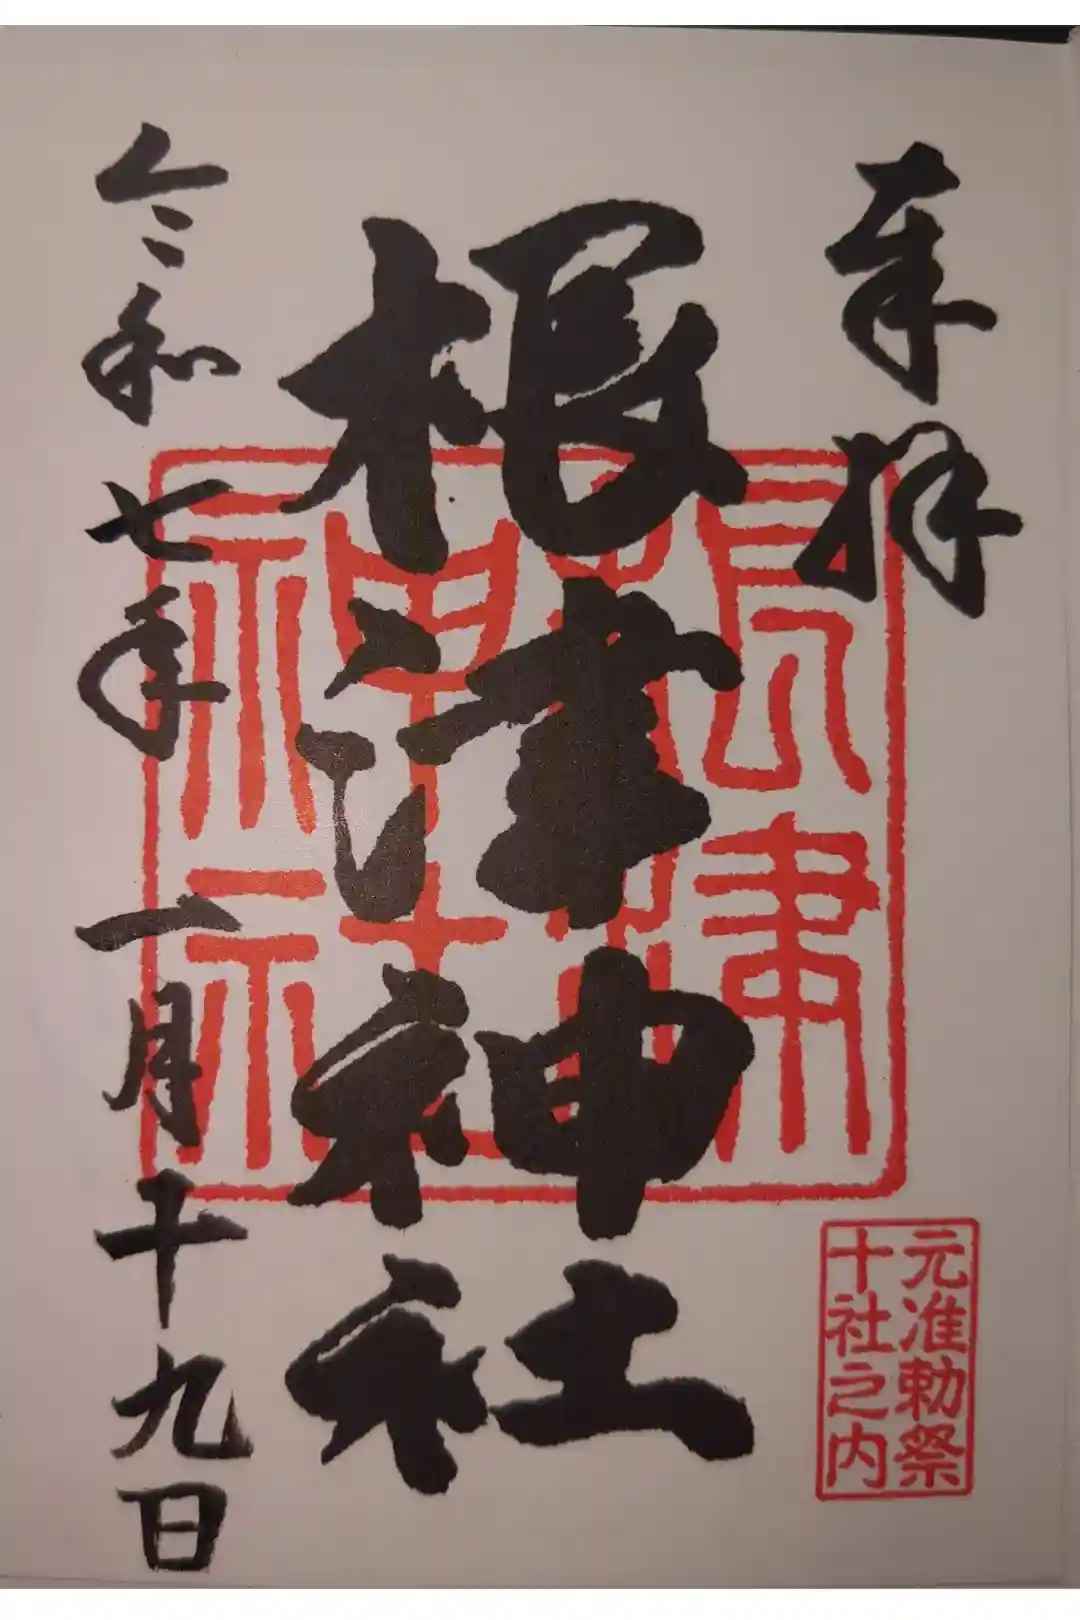 奉拝
根津神社
根津神社
元准勅祭
十社之内
令和七年一月十九日